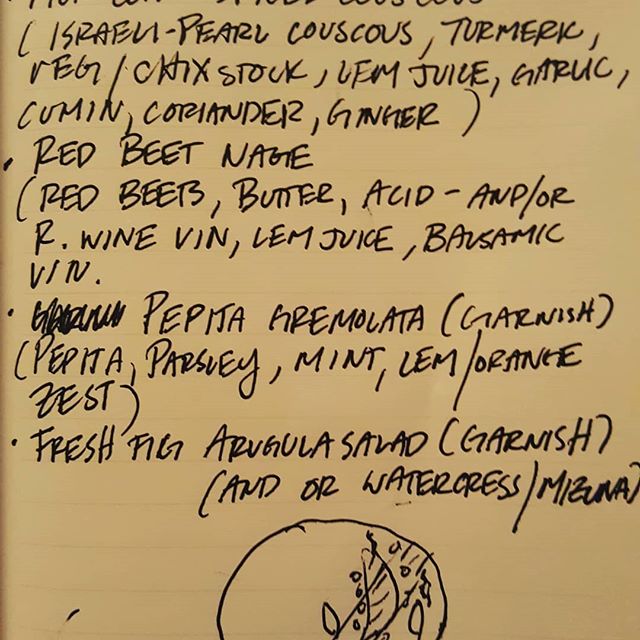 COUSCOUS
(ISRAELI-PEARL COUSCOUS, TURMERIC,
VEG/CHIX STOCK, LEM JUICE, GARLIC,
CUMIN, CORIANDER, GINGER)
• RED BEET NAGE
(RED BEETS, BUTTER, ACID - AND/OR
R. WINE VIN, LEM JUICE, BALSAMIC
VIN.
• PEPITA GREMOLATA (GARNISH)
(PEPITA, PARSLEY, MINT, LEM/ORANGE
ZEST)
• FRESH FIG ARUGULA SALAD (GARNISH)
(AND OR WATERCRESS/MIZUNA)